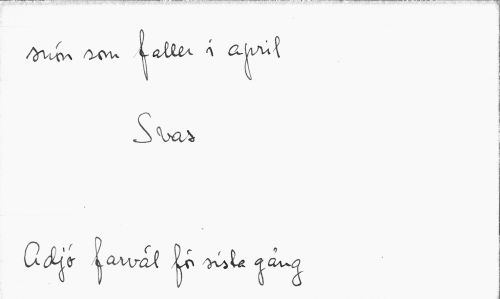 snön som faller i april
Svas
Adjö farväl för sista gång